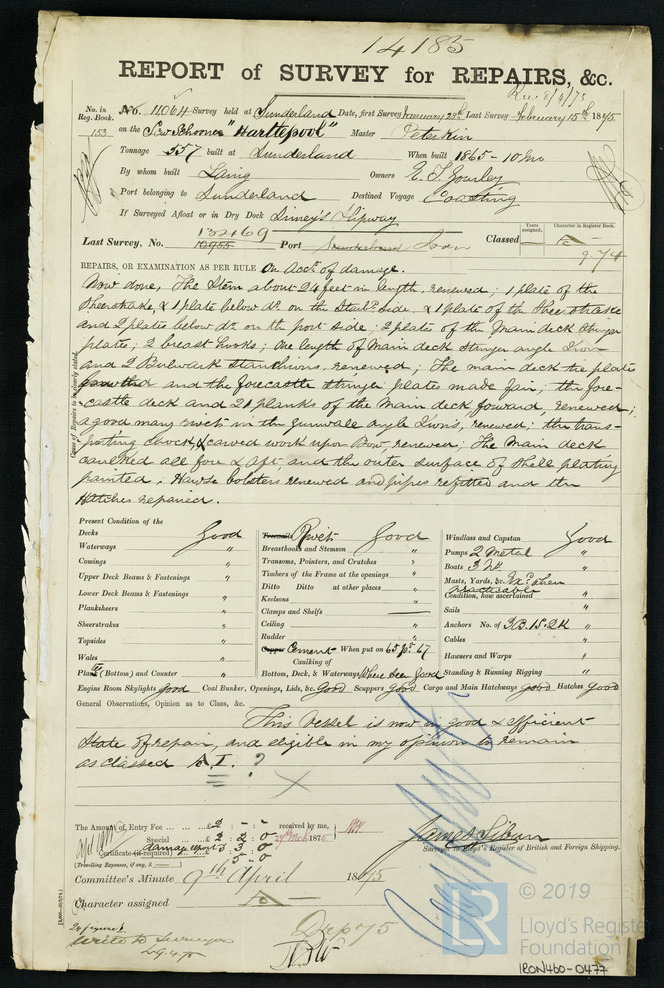 14185
REPORT of SURVEY for REPAIRS, &c.
Rec 8/4/75
No. in Reg. Book. No. 11064 Survey held at Sunderland Date, first Survey January 28th Last Survey February 15th 1875
153 on the Scw Schooner "Hartlepool" Master Peterkin
Tonnage 557 built at Sunderland When built 1865-10mo
By whom built Laing Owners E. T. Gourley
Port belonging to Sunderland Destined Voyage Coasting
If Surveyed Afloat or in Dry Dock Slipway
132469 Years assigned. Character in Register Book.
Last Survey, No. 10955 Port Sunderland Classed A
9-74
REPAIRS, OR EXAMINATION AS PER RULE On Acct. of damage.
Now done, The Stem about 24 feet in length, renewed; 1 plate of the
Sheerstrake, & 1 plate below do. on the Starbd. side, & 1 plate of the Sheerstrake
and 2 plates below do. on the port side; 2 plates of the Main deck stringer
plates; 2 breast hooks; One length of Main deck stringer angle Iron
and 2 Bulwark stanchions, renewed; The main deck the plate
and the forecastle stringer plates made fair; the fore-
castle deck and 21 planks of the Main deck forward, renewed;
a good many rivets in the Gunwale angle Irons, renewed; the trans-
porting chock, & carved work upon Bow, renewed; The Main deck
caulked all fore & aft and the outer surface of Shell plating
painted. Hawse bolsters renewed and pipes refitted and the
Hatches repaired.
Cause of Repairs to be clearly stated.
Present Condition of the
Decks Good
Waterways "
Comings "
Upper Deck Beams & Fastenings "
Lower Deck Beams & Fastenings "
Planksheers "
Sheerstrakes "
Topsides "
Wales "
Plank (Bottom) and Counter "
Treenails Rivets Good
Breasthooks and Stemson "
Transoms, Pointers, and Crutches "
Timbers of the Frame at the openings "
Ditto Ditto at other places "
Keelsons "
Clamps and Shelfs
Ceiling "
Rudder "
Copper Cement When put on 65 pt 67
Caulking of
Bottom, Deck, & Waterways Where seen Good
Windlass and Capstan Good
Pumps 2 Metal "
Boats 3 No "
Masts, Yards, &c. Exd. when practicable
Condition, how ascertained
Sails "
Anchors No. of 3B. 1S. 2K "
Cables "
Hawsers and Warps "
Standing & Running Rigging "
Engine Room Skylights good Coal Bunker, Openings, Lids, &c. Good Scuppers Good Cargo and Main Hatchways good Hatches Good
General Observations, Opinion as to Class, &c.
This Vessel is now in good & efficient
State of repair, and eligible in my opinion to remain
as classed A.1. ?
The Amount of Entry Fee £2 - - received by me,
Special £ 2 : 2 : 0 24th Mch 1875
Certificate (if required) damage report £ 3 : 3 : 0
(Travelling Expenses, if any, £ ) 5 - 0
Surveyor to Lloyd's Register of British and Foreign Shipping.
Committee's Minute 9th April 1875
Character assigned A
Write to Surveyor
© 2019
LR
Lloyd's Register
Foundation
IRON460-0477